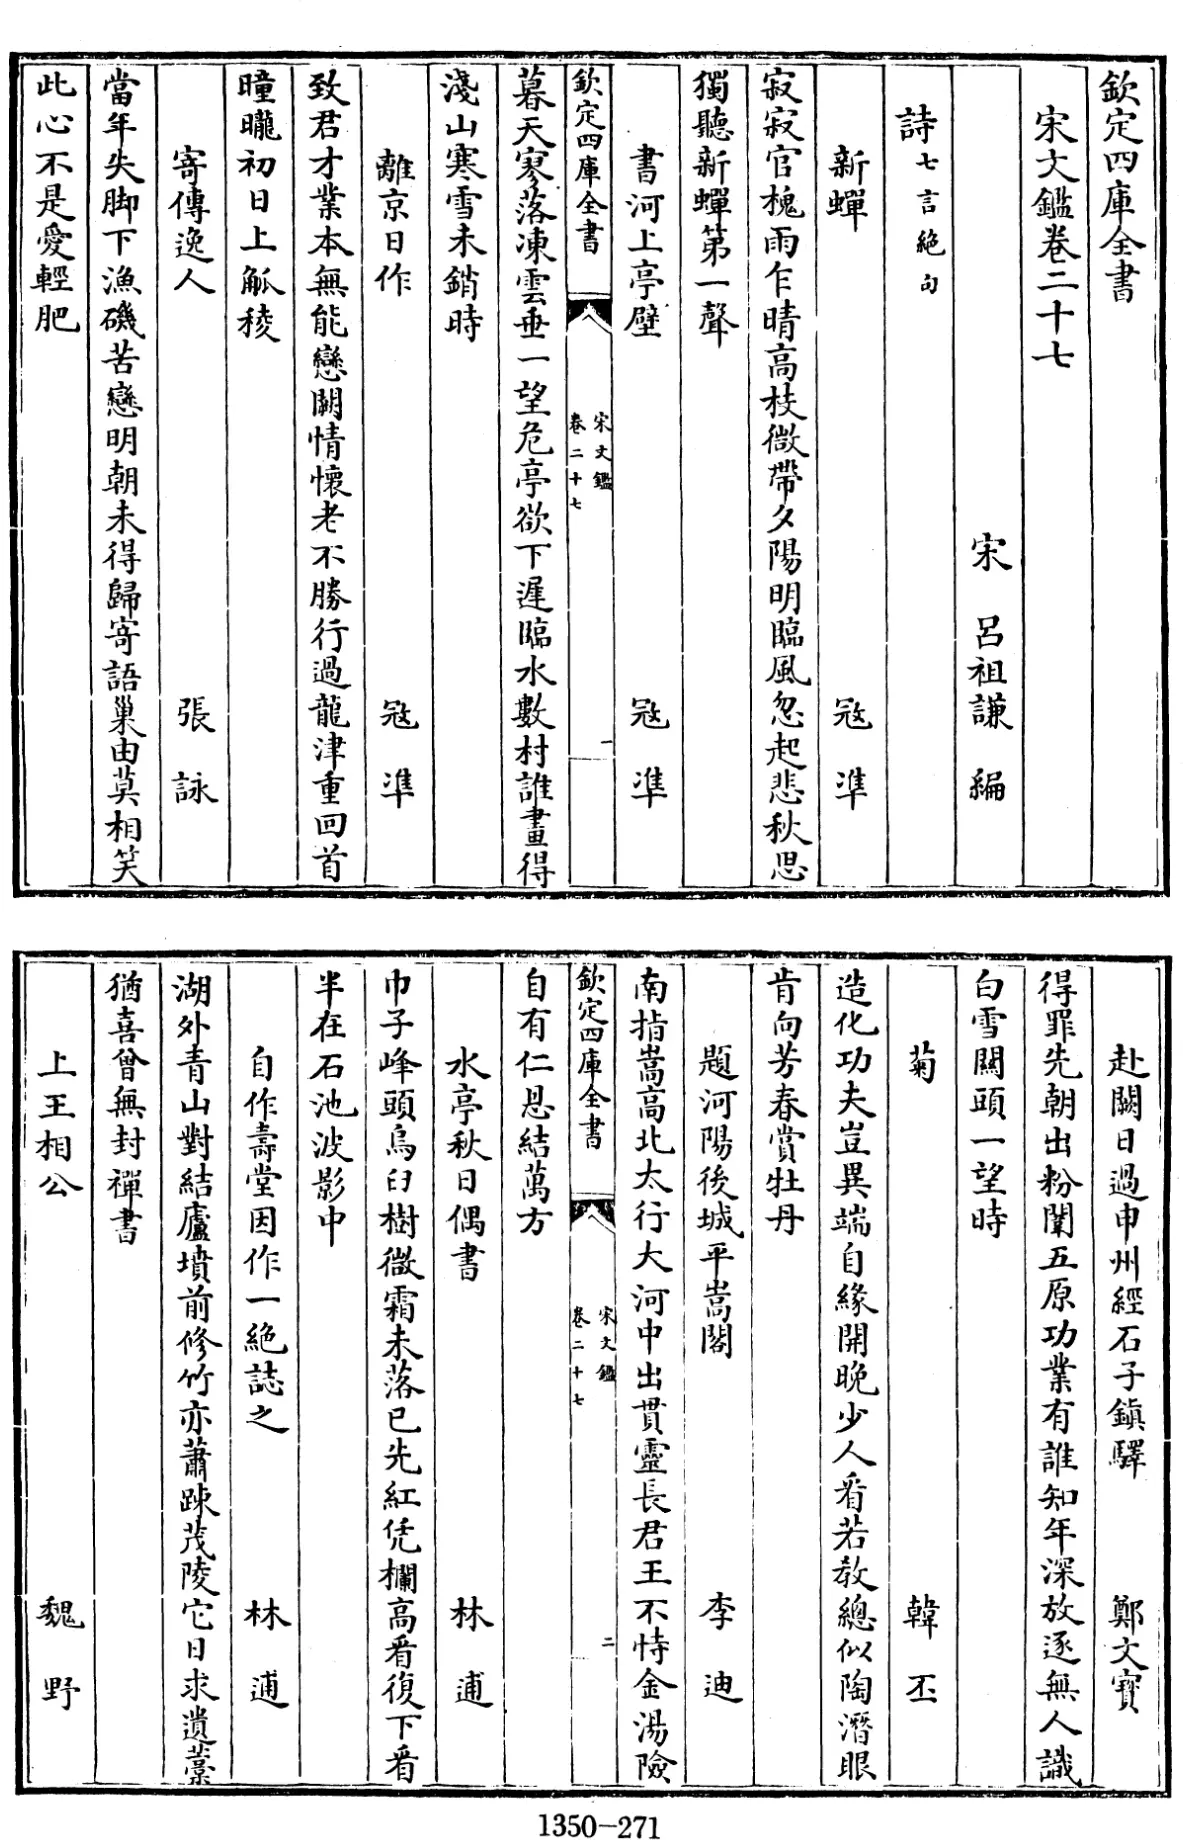 欽定四庫全書
宋文鑑卷二十七
宋 呂祖謙 編
詩七言絶句
新蟬 宼準
寂寂官槐雨乍晴高枝微帶夕陽明臨風忽起悲秋思
獨聽新蟬第一聲
書河上亭壁 宼準
欽定四庫全書 宋文鑑 卷二十七 一
暮天寥落凍雲垂一望危亭欲下遲臨水數村誰畫得
淺山寒雪未銷時
離京日作 宼準
致君才業本無能戀闕情懷老不勝行過龍津重回首
曈曨初日上觚稜
寄傳逸人 張詠
當年失脚下漁磯苦戀明朝未得歸寄語巢由莫相笑
此心不是愛輕肥
赴闕日過申州經石子鎮驛 鄭文寳
得罪先朝出粉闈五原功業有誰知年深放逐無人識
白雪關頭一望時
菊 韓丕
造化功夫豈異端自緣開晚少人看若教總似陶潛眼
肯向芳春賞牡丹
題河陽後城平嵩閣 李迪
南指嵩高北太行大河中出貫靈長君王不恃金湯險
欽定四庫全書 宋文鑑 卷二十七 二
自有仁恩結萬方
水亭秋日偶書 林逋
巾子峰頭烏臼樹微霜未落已先紅凭欄高看復下看
半在石池波影中
自作壽堂因作一絶誌之 林逋
湖外青山對結廬墳前修竹亦蕭踈茂陵它日求遺藁
猶喜曾無封禪書
上王相公 魏野
1350-271